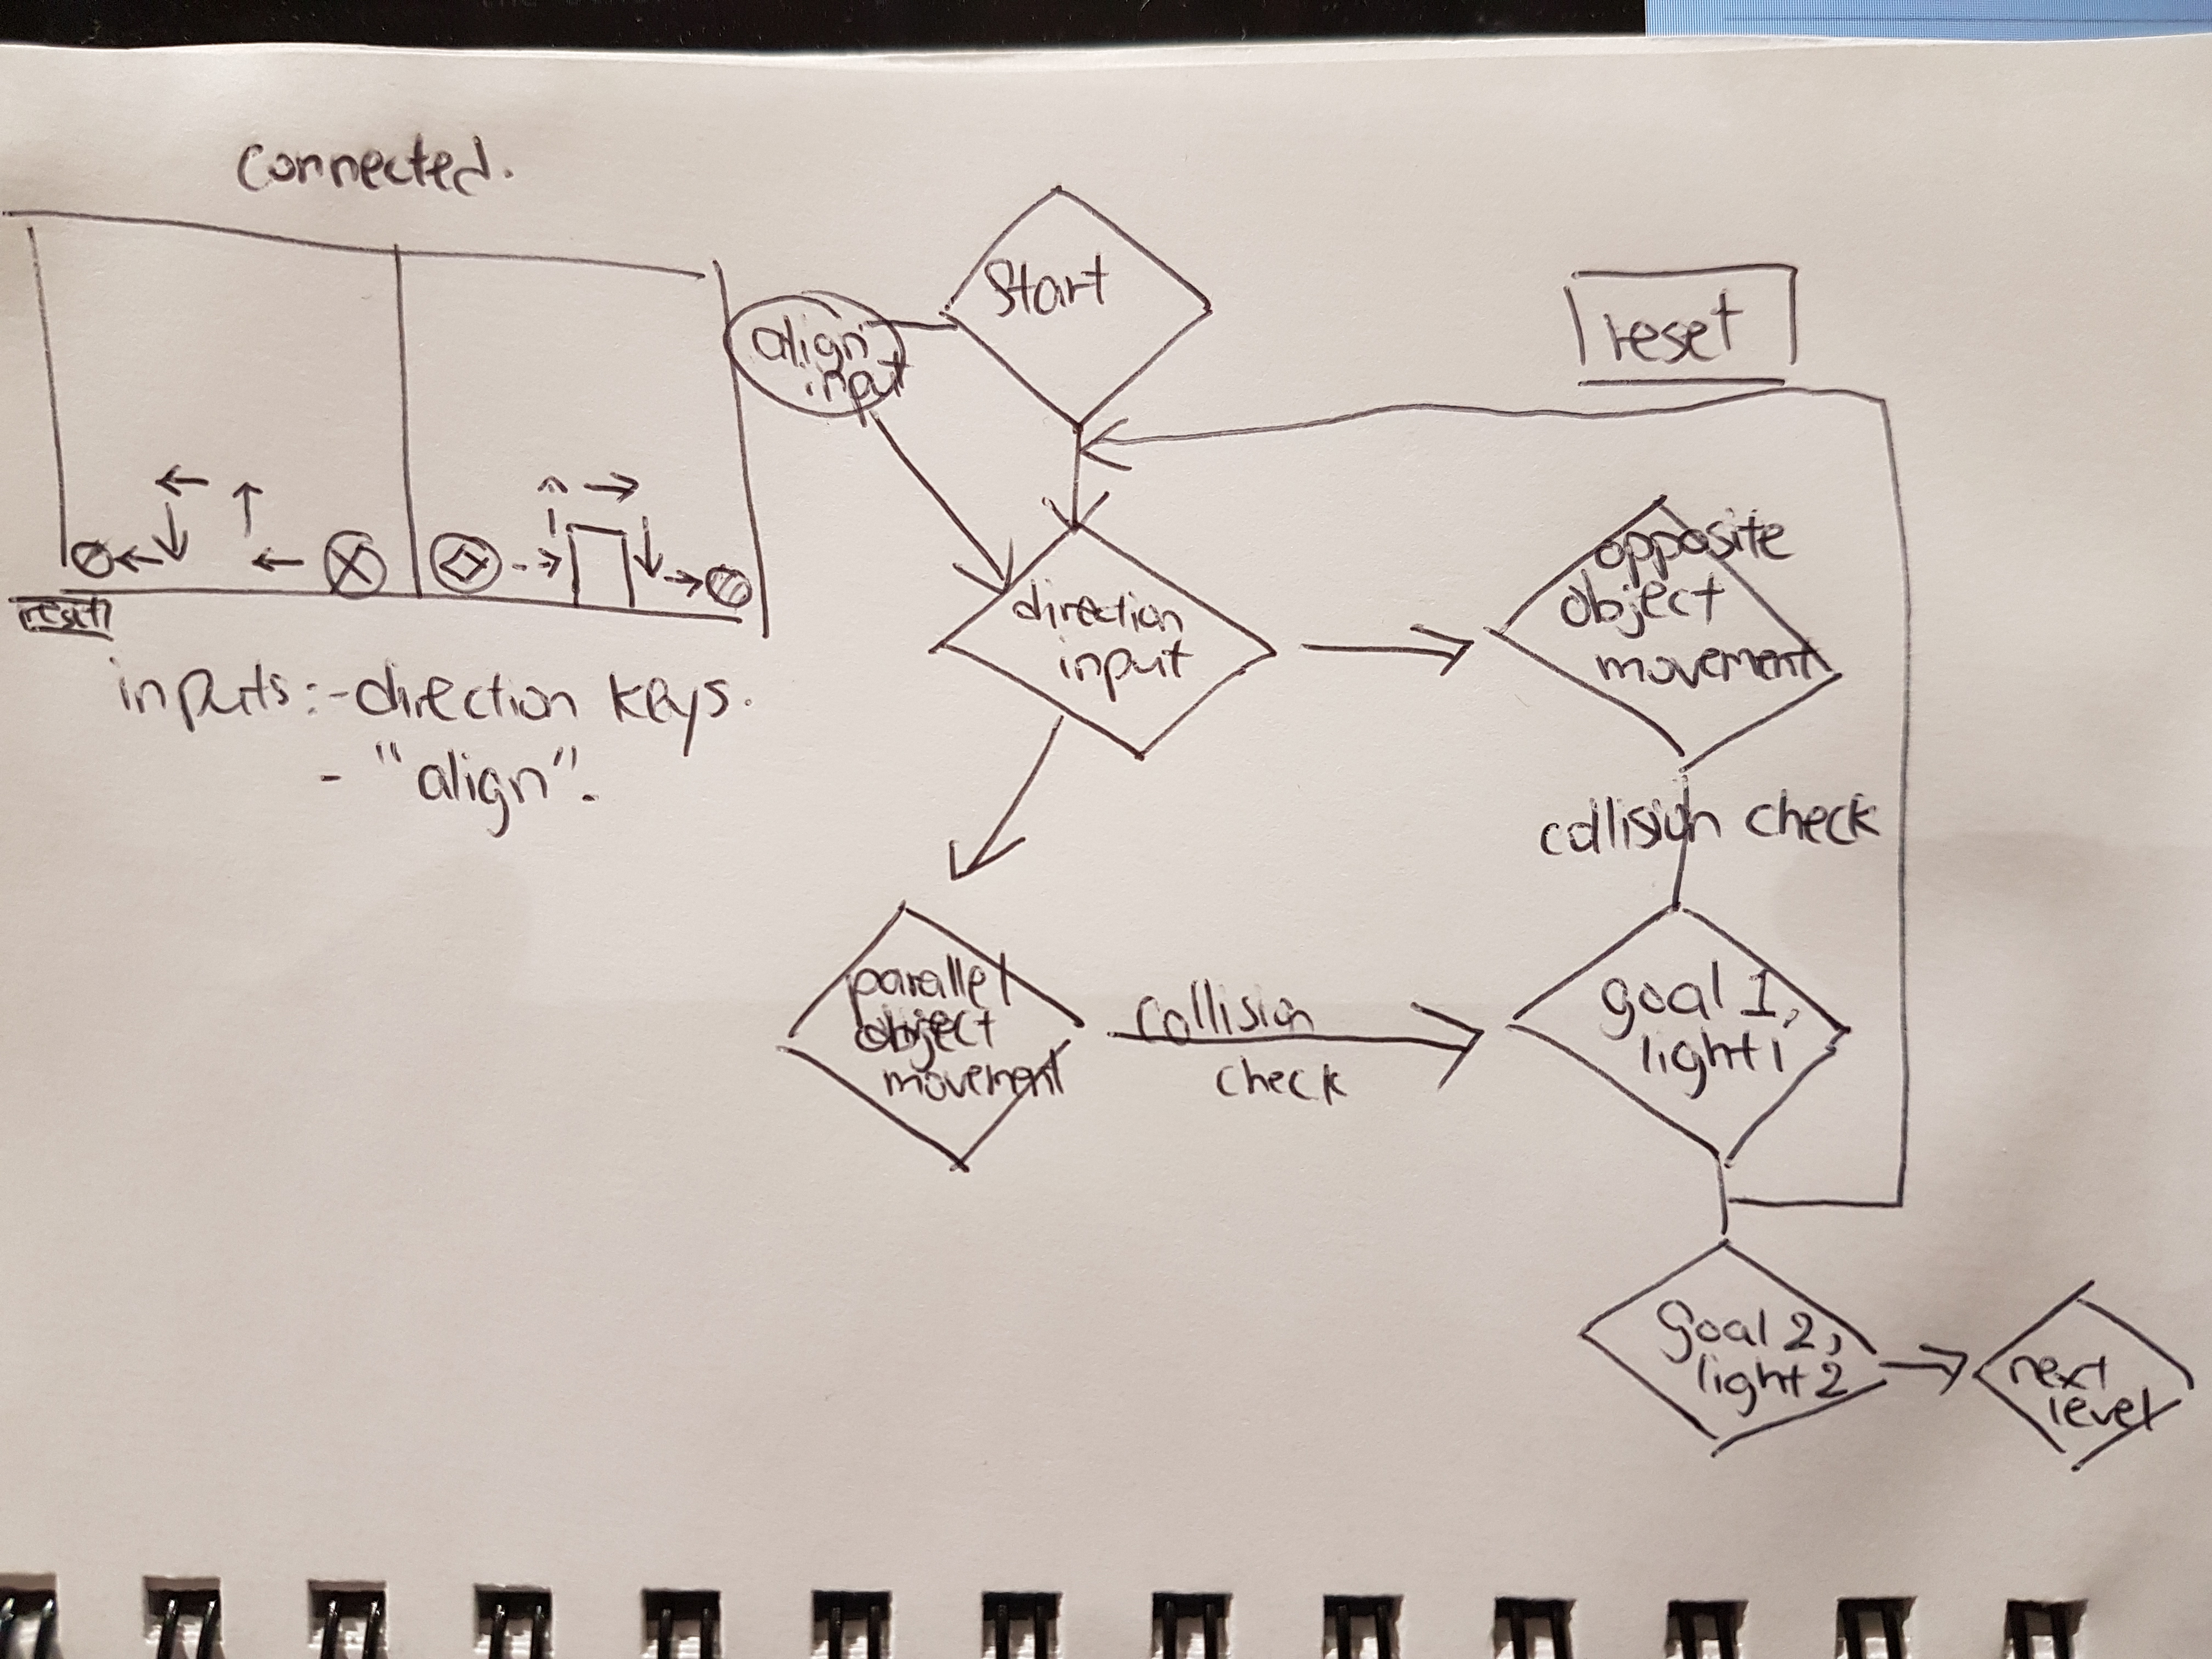 connected.
reset
inputs: - direction keys.
- "align".
align
input
Start
reset
direction
input
opposite
object
movement
collision check
parallel
object
movement
collision
check
goal 1,
light 1
goal 2,
light 2
next
level